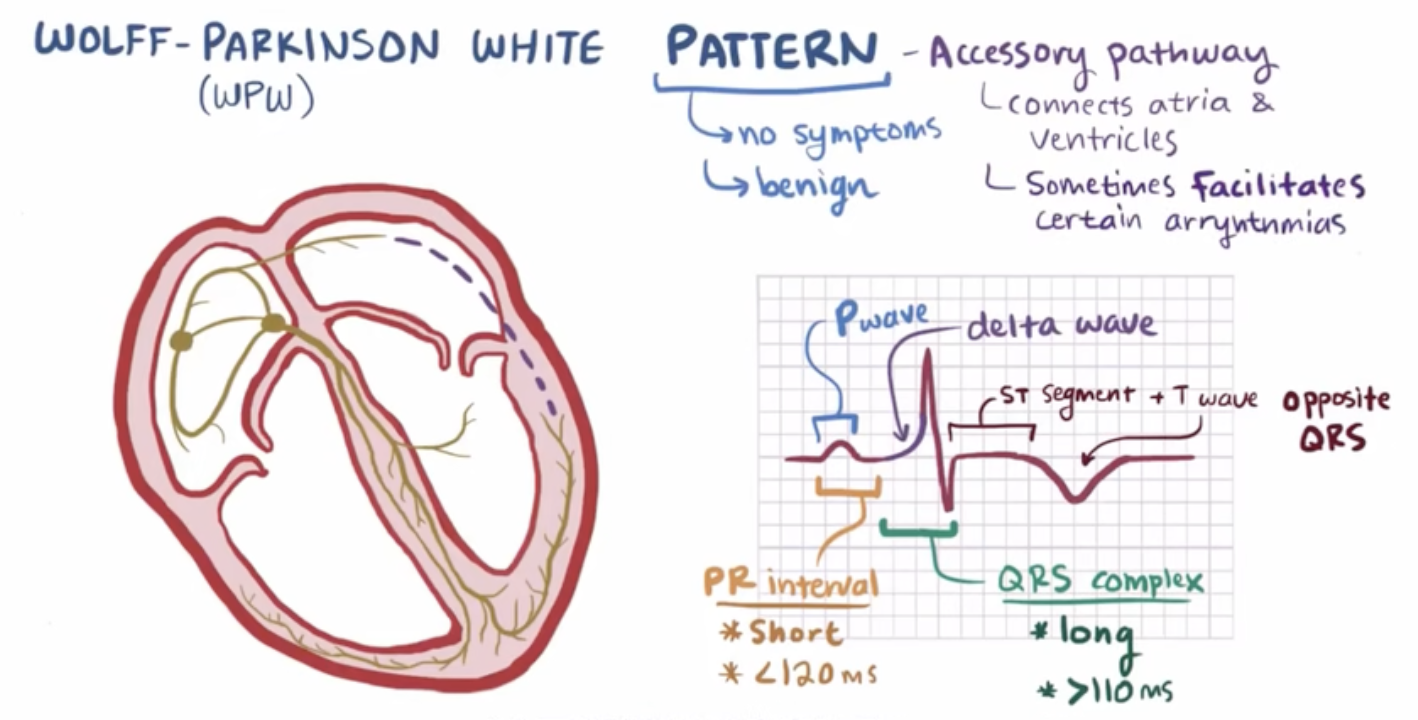 WOLFF-PARKINSON WHITE PATTERN - Accessory pathway
(WPW)
connects atria &
ventricles
no symptoms
benign
Sometimes facilitates
certain arryhthmias
P wave
delta wave
ST segment + T wave opposite
QRS
PR interval
* Short
* <120 ms
QRS complex
* long
* >110 ms